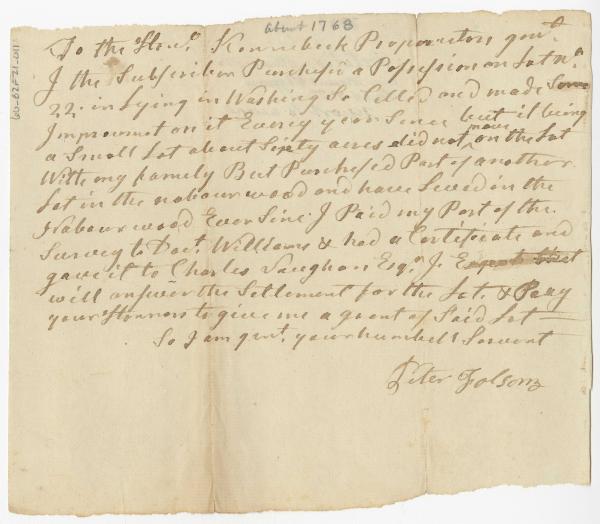 about 1768
To the Honr. Kennebeck Propriators gent.
I the Subscriber Purchesd a Possession on Lot No.
22 in Lying in Washing So Called and made Some
Improvment on it Every year Sence but it being
a Small Lot about Sixty acres did not move on the Lot
With my family But Purchesed Part of another
Lot in the nabour wood and have Lived in the
Nabour wood Ever Sinc. I Paid my Part of the
Survey to Doct. Williams & had a Certificate and
gave it to Charles Vaughan Esqr. I Expect that
will answer the Settlement for the Lot. & Pray
your Honnors to give me a grant of Said Lot
So I am gent. your humbell Servent
Peter Folsom